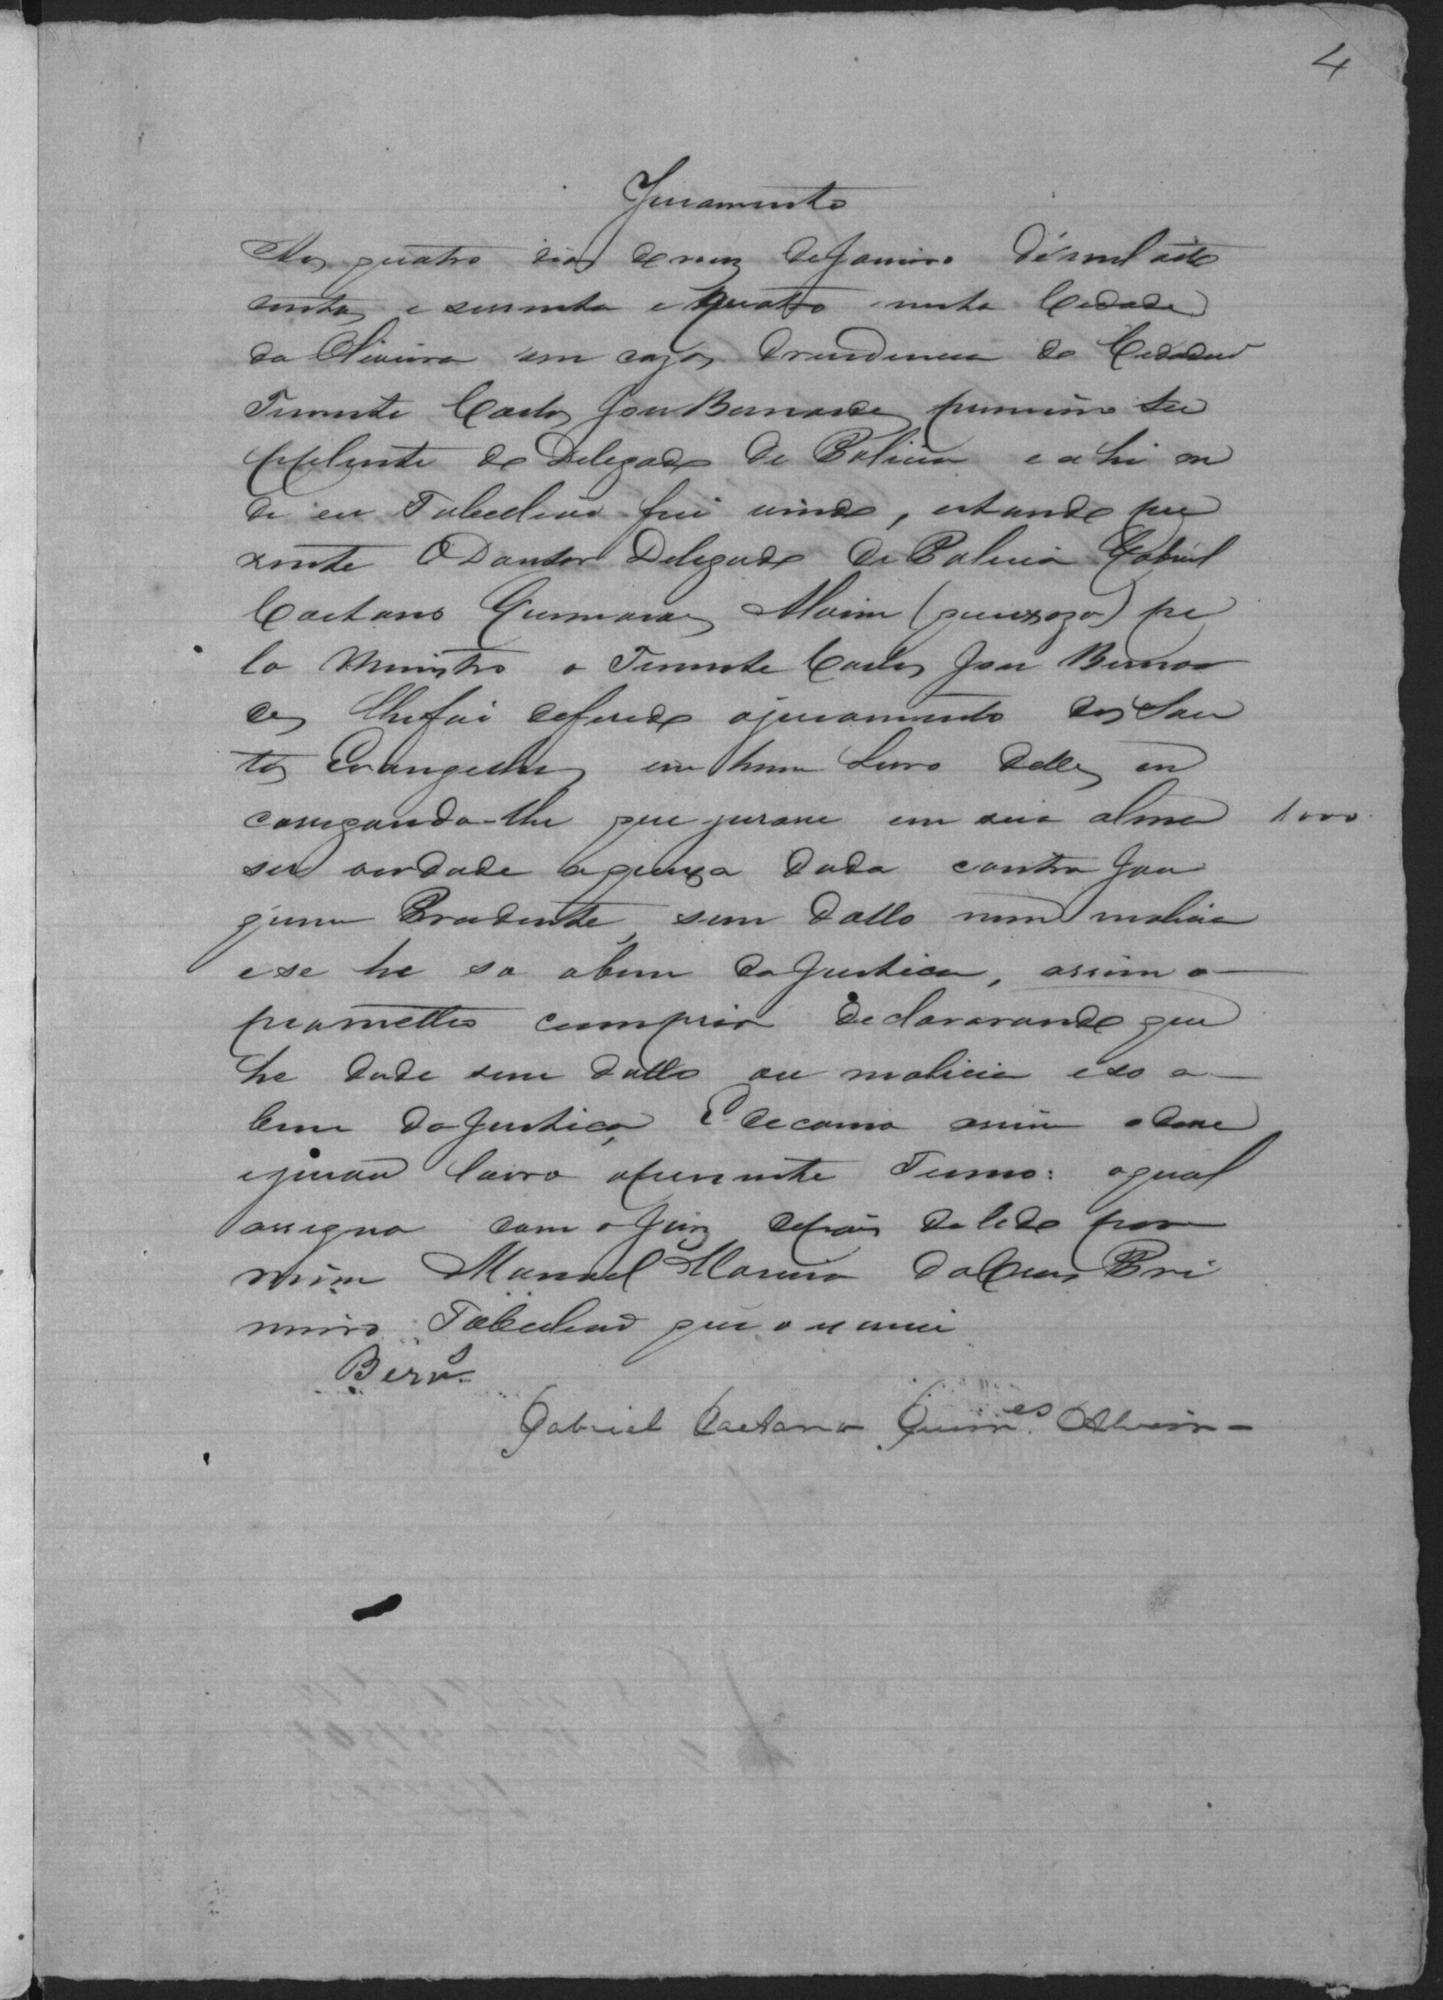 4
Juramento
Aos quatro dias do mez de Janeiro de mil oito
centos e secenta e quatro nesta Cidade
da Oliveira em cazas de rezidencia do Cidadaõ
Tenente Carlos Jose Bernardes primeiro Su
pplente do Delegado de Policia e ahi on
de eu Tabeliaõ fui vindo, estando pre
zente O Doutor Delegado de Policia Gabriel
Caetano Guimaraes Alvim (queixozo) pe
lo Ministro o Tenente Carlos Jose Bernar
des lhe foi deferido o juramento dos San
tos Evangelhos em hum Livro delles en
carregando-lhe que jurase em sua alma 1000
ser verdade a queixa dada contra Joa
quim Prudente, sem dollo nem malicia
e se he so a bem da Justica, assim o
prometteo cumprir declararando que
he dada sem dollo ou malicia e so a
bem da Justiça, E de como assim o dice
e jurou lavro o prezente Termo: o qual
assigna com o Juiz depois de lido por
mim Manoel Moreira da Cruz Pri
meiro Tabeliaõ que o escrevi
Bern.
Gabriel Caetano Guim.es Alvim